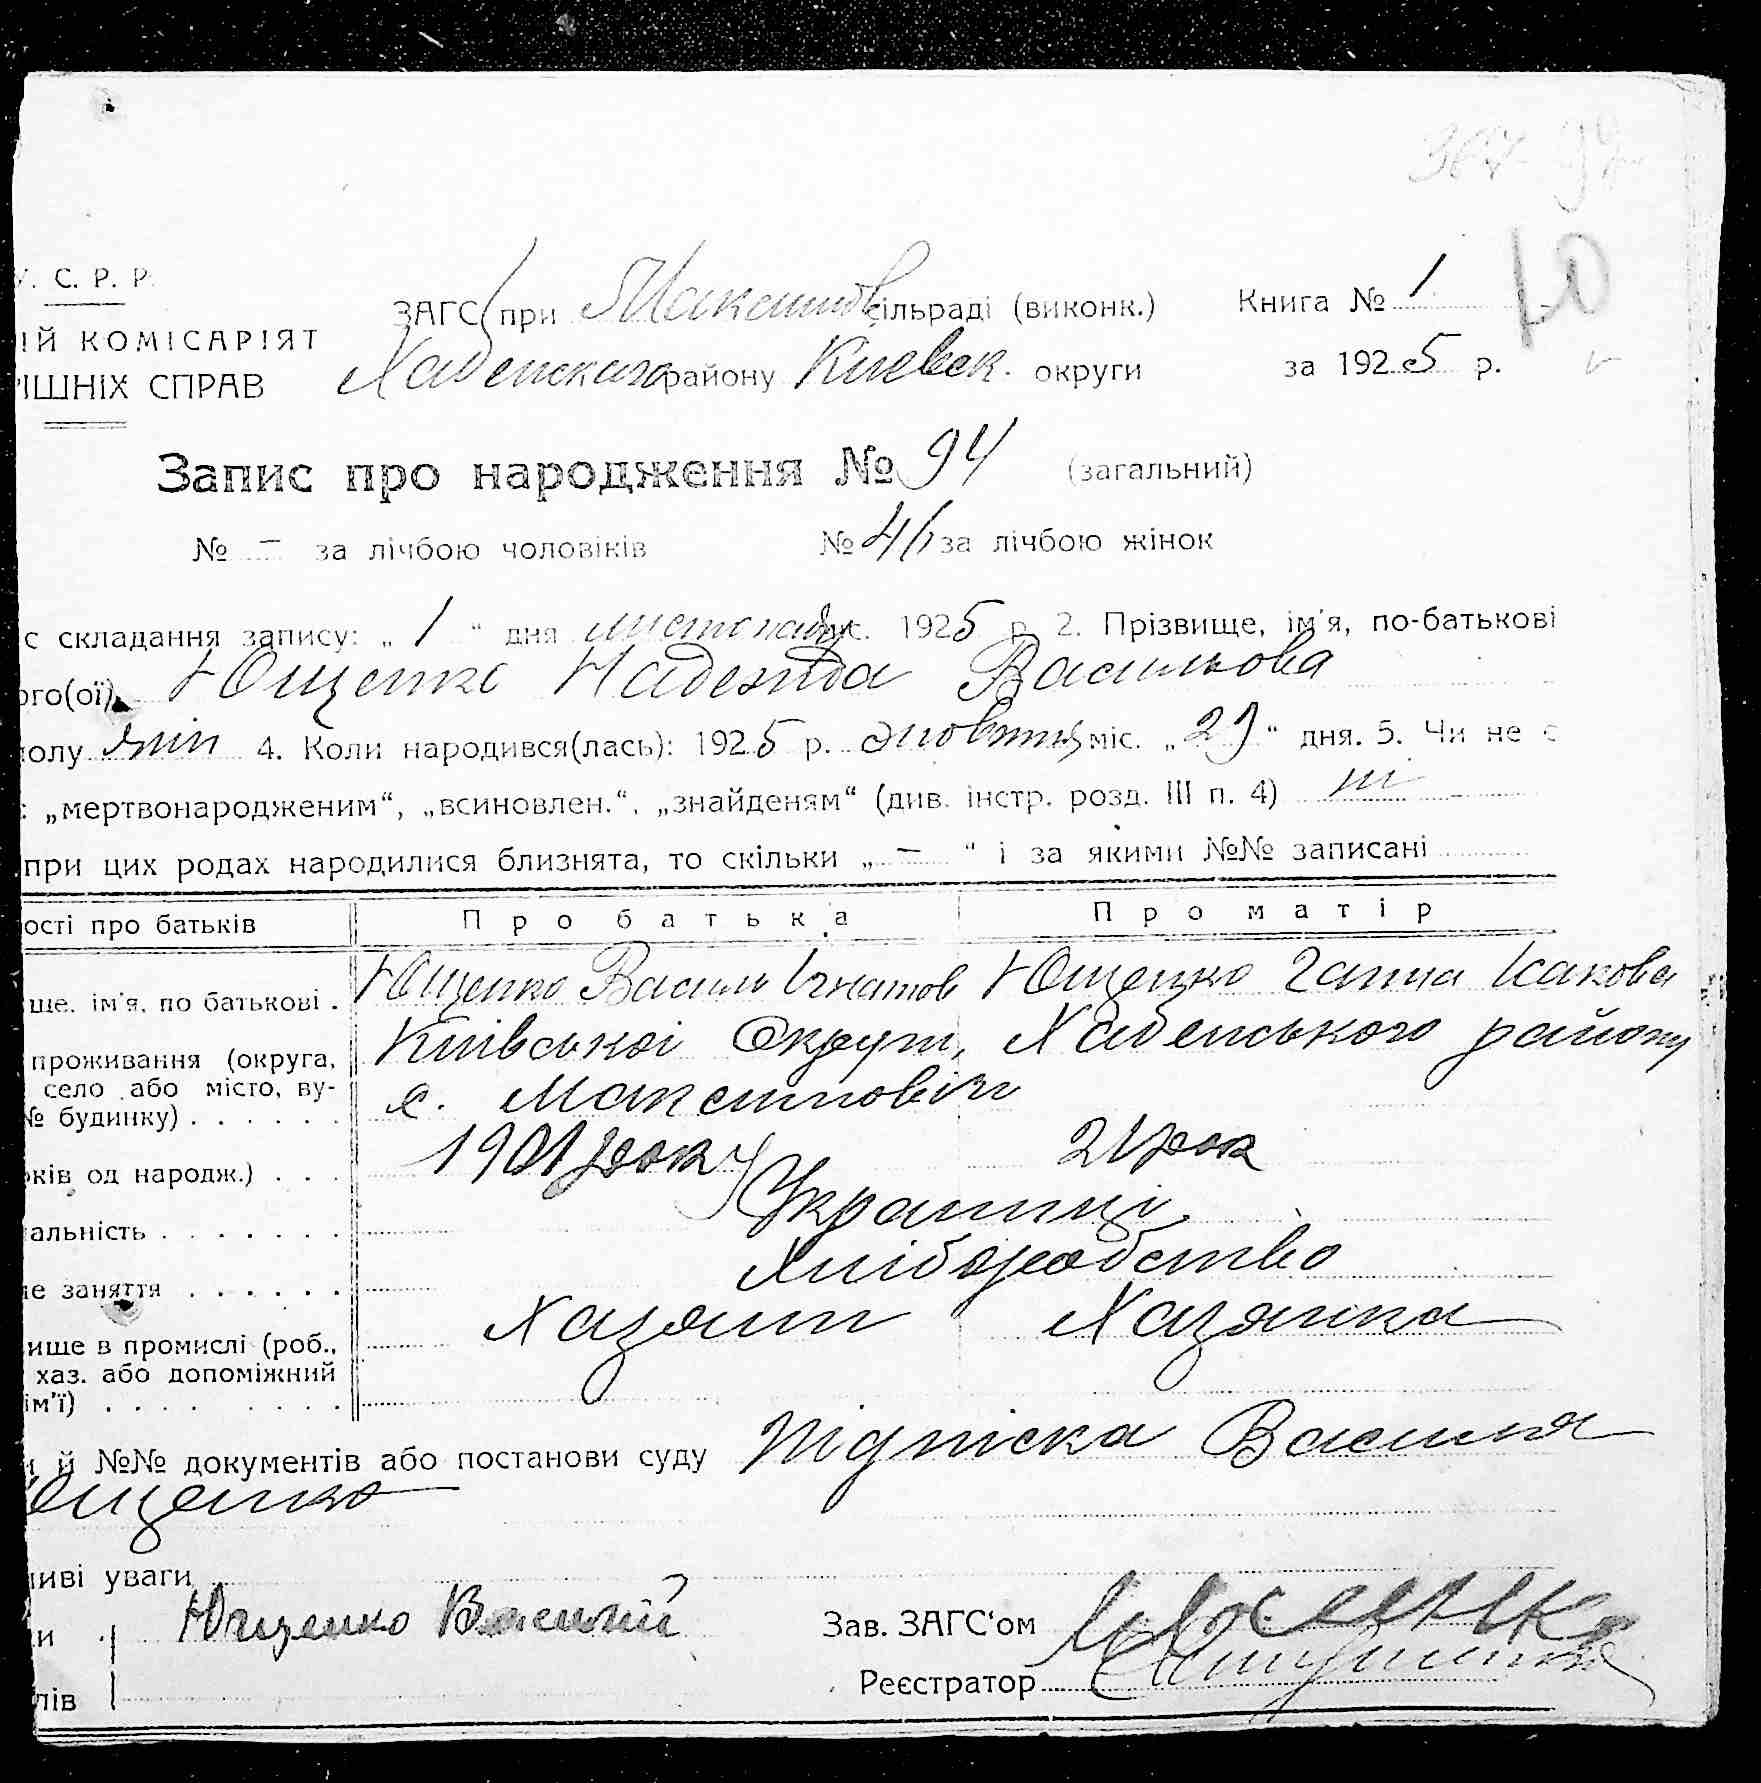 367 97
10
У. С. Р. Р.
ЗАГС при Максимов сільраді (виконк.) Книга № 1
ІЙ КОМІСАРІЯТ
Хабенского району Киевск. округи за 1925 р.
ІШНІХ СПРАВ
Запис про народження № 94 (загальний)
№ — за лічбою чоловіків № 46 за лічбою жінок
с складання запису: „ 1 “ дня листопада міс. 1925 р. 2. Прізвище, ім'я, по-батькові
ого(ої) Ющенко Надежда Васильова
полу жін 4. Коли народився(лась): 1925 р. жовтня міс. „ 29 “ дня. 5. Чи не є
: „мертвонародженим“, „всиновлен.“, „знайденям“ (див. інстр. розд. III п. 4) ні
при цих родах народилися близнята, то скільки „ — “ і за якими №№ записані
ості про батьків Про батька Про матір
ще, ім'я, по батькові . Ющенко Василь Ігнатов Ющенко Ганна Ісакова
проживання (округа, Київської Округи, Хабенського району
село або місто, ву- с. Максимовичи
№ будинку) . . . . . .
ків од народж.) . . . 1901 року 21 рок
альність . . . . . . . Українці
не заняття . . . . . . Хліборобство
ище в промислі (роб., Хазяин Хазяйка
хаз. або допоміжний
ім'ї) . . . . . . . .
и й №№ документів або постанови суду Підписка Василя
Ющенко
ливі уваги
и Ющенко Василий Зав. ЗАГС‘ом
Реєстратор
лів